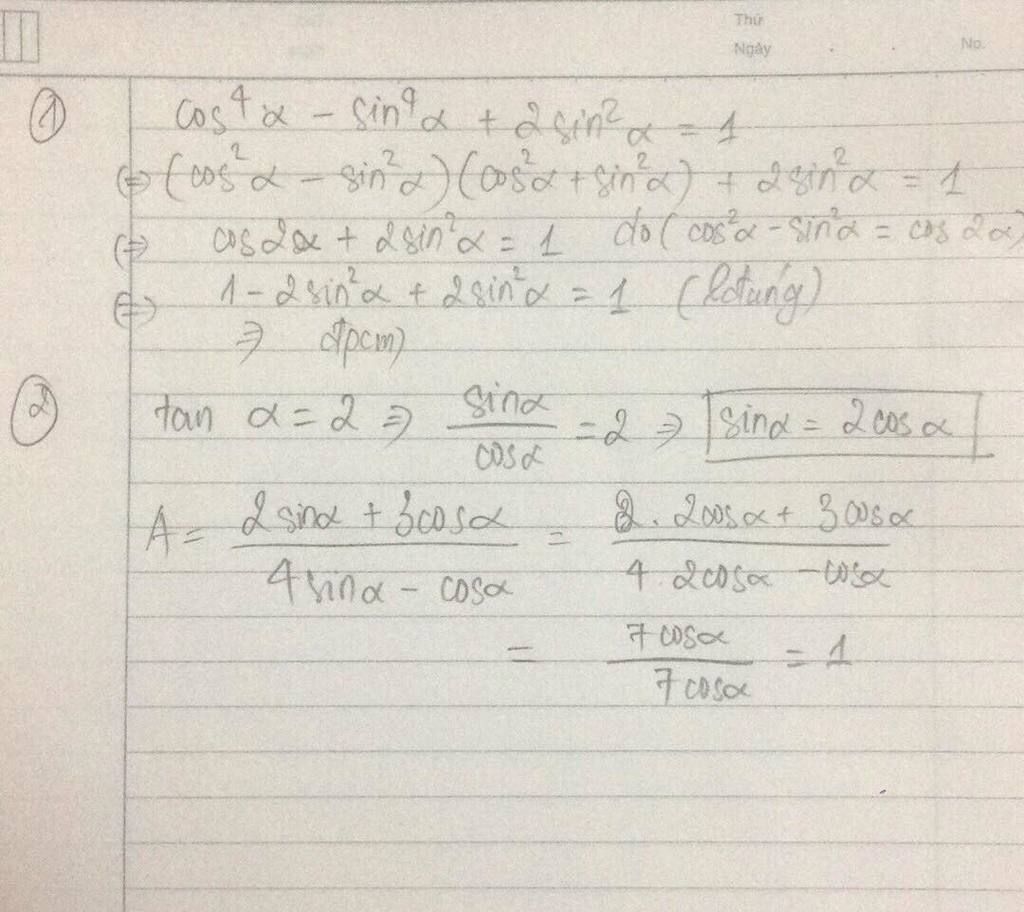 Thứ
Ngày . . No.
① cos⁴α − sin⁴α + 2sin²α = 1
(⇒) (cos²α − sin²α)(cos²α + sin²α) + 2sin²α = 1
(⇒) cos2α + 2sin²α = 1 do (cos²α − sin²α = cos 2α)
(⇒) 1 − 2sin²α + 2sin²α = 1 (lđúng)
⇒ đpcm)
② tan α = 2 ⇒ sinα/cosα = 2 ⇒ sinα = 2cosα
A = (2sinα + 3cosα)/(4sinα − cosα) = (2. 2cosα + 3cosα)/(4. 2cosα − cosα)
= 7cosα/7cosα = 1